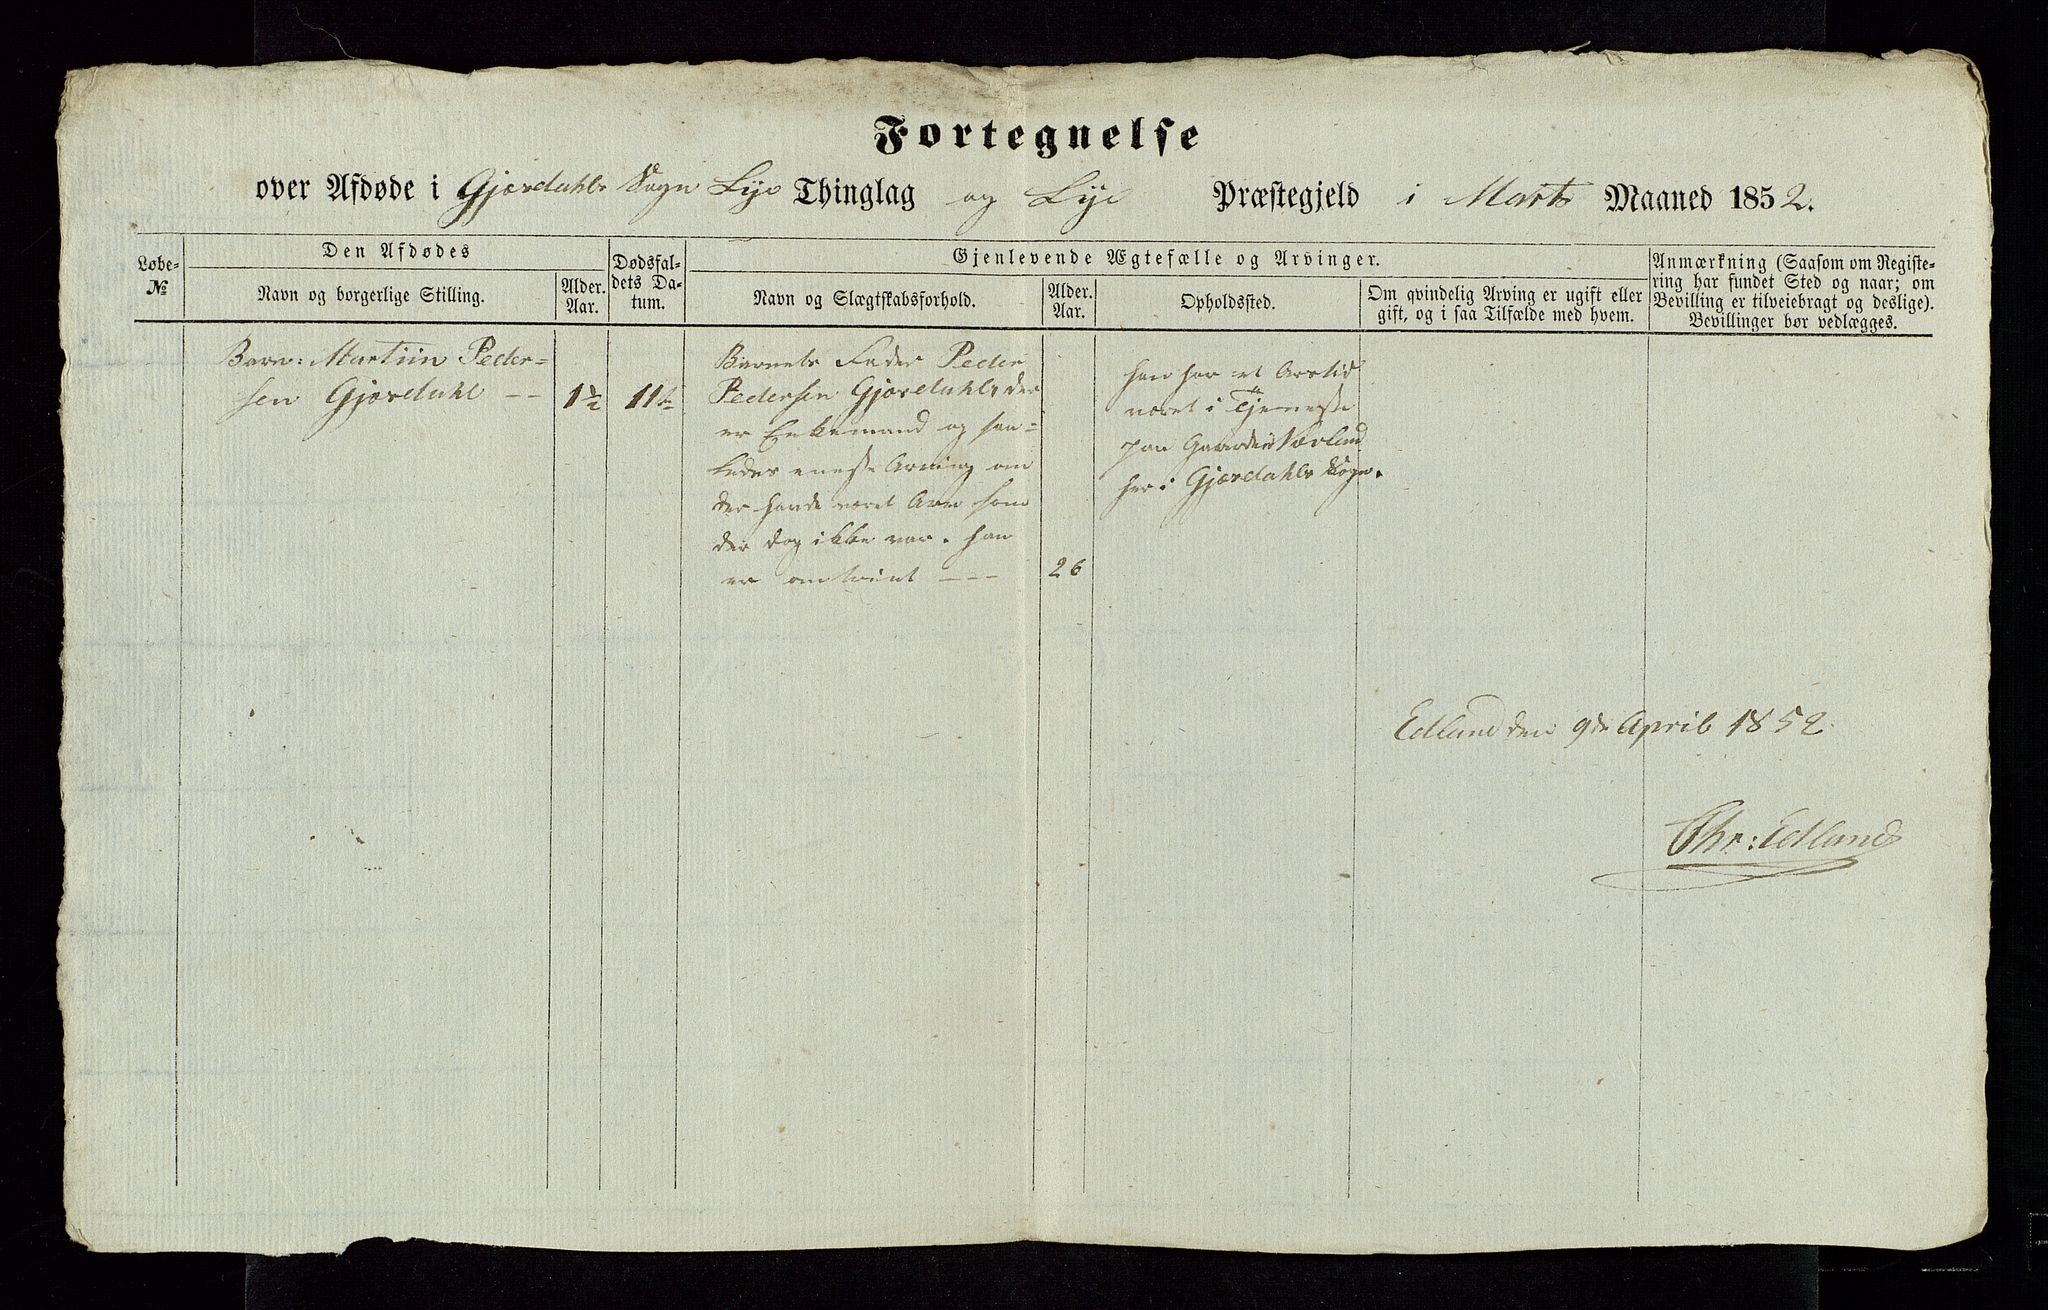 Fortegnelse
over Afdøde i Gjæsdahls Sogn Lye Thinglag og Lye Præstegjeld i Marts Maaned 1852.
Løbe-
№
Den Afdødes
Navn og borgerlige Stilling.
Alder.
Aar.
Dødsfal-
dets Da-
tum.
Gjenlevende Ægtefælle og Arvinger.
Navn og Slægtskabsforhold.
Alder.
Aar.
Opholdssted.
Om qvindelig Arving er ugift eller
gift, og i saa Tilfælde med hvem.
Anmærkning (Saasom om Registe-
ring har fundet Sted og naar; om
Bevilling er tilveiebragt og deslige).
Bevillinger bør vedlægges.
Barn: Martiin Peder-
sen Gjæsdahl --
1½
11te
Barnets Fader Peder
Pedersen Gjæsdahl, der
er Enkemand og saa-
ledes eneste Arving om
der havde været Arv som
der dog ikke var. han
er omtrent ---
26
han har et Aarstid
været i Tjeneste
paa Gaarden Nærland
her i Gjæsdahls Sogn.
Edland den 9de April 1852
Chr: Edland